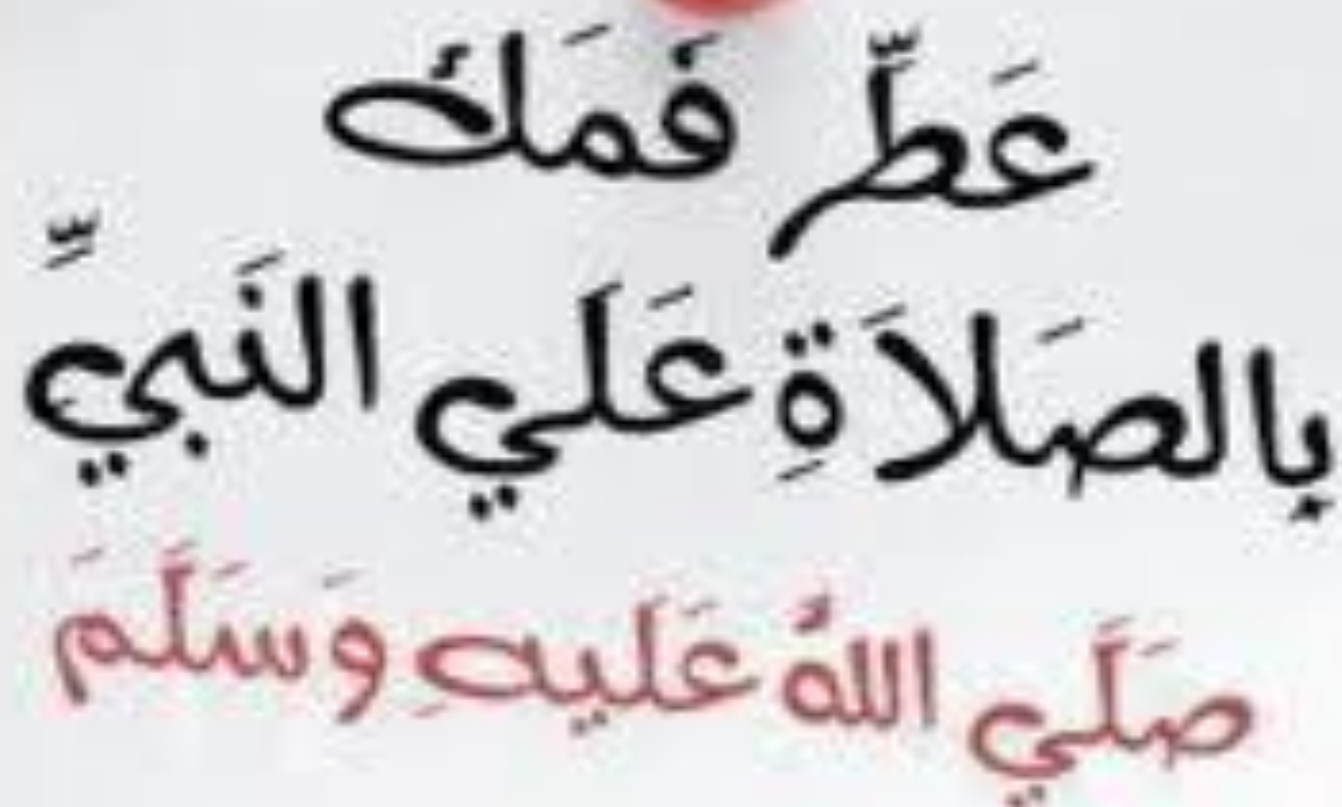 عَطّر فَمَك
بالصَلاَةِ عَلَي النَبيِّ
صَلَّي اللهُ عَلَيهِ وَسَلَّمَ